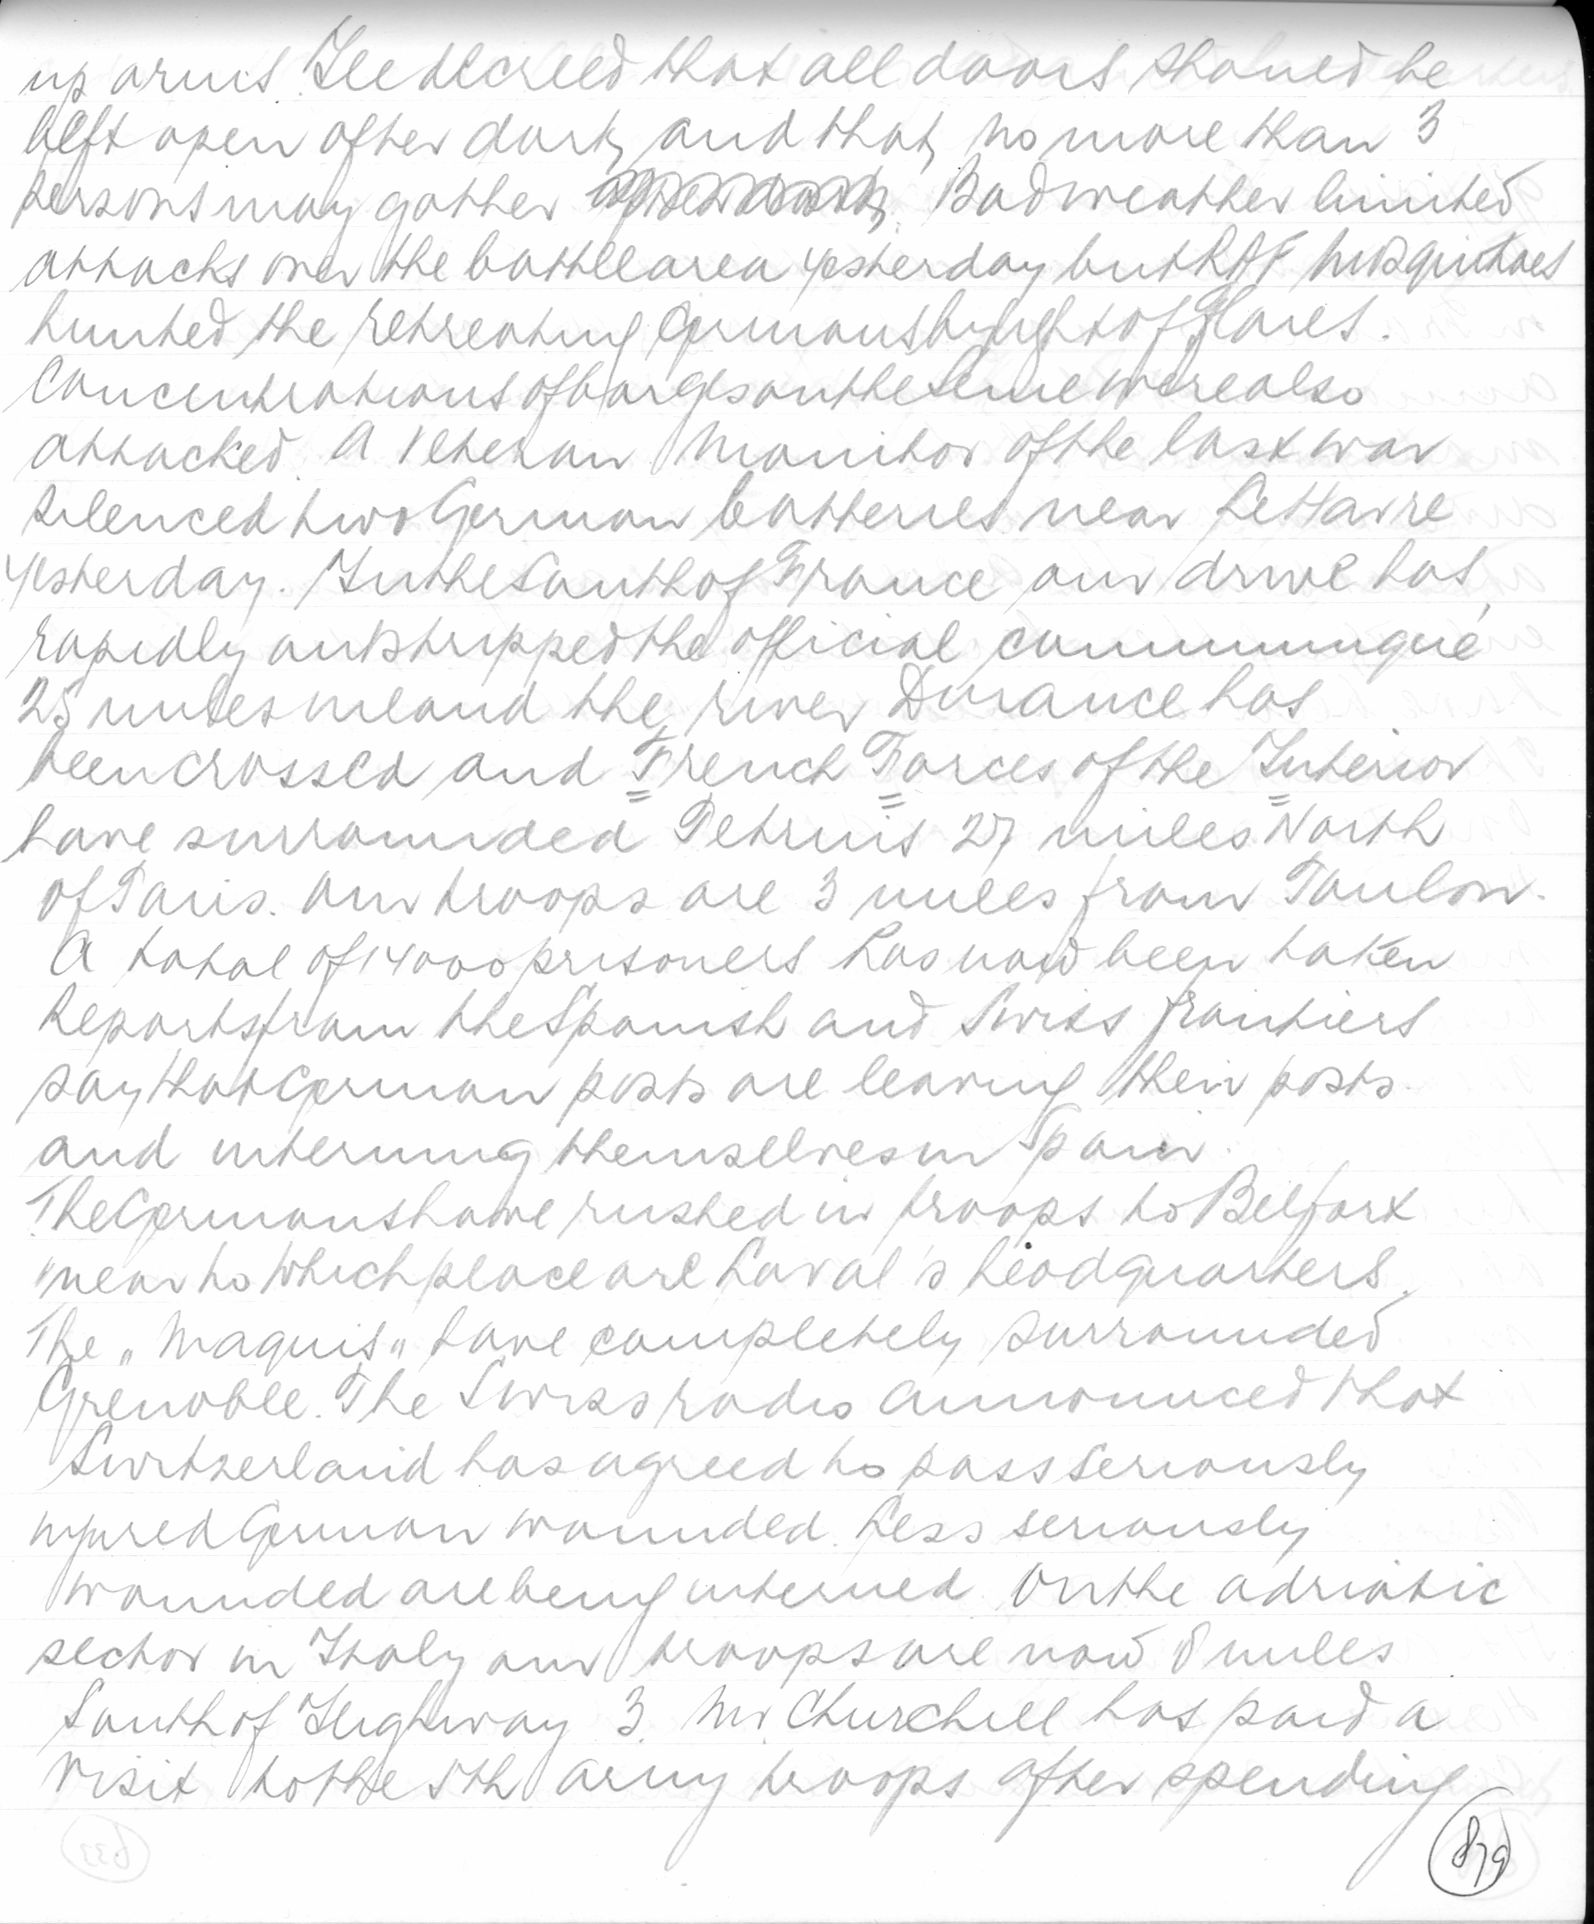 up arms. He decreed that all doors should be
left open after dark, and that, no more than 3
persons may gather after dark, Bad weather limited
attacks over the battle area yesterday but RAF Mosquitoes
hunted the retreating Germans by light of flares.
Concentrations of barges on the Seine were also
attacked. A veteran Monitor of the last war
silenced two German batteries near Le Havre
yesterday. In the South of France our drive has
rapidly outstripped the official communiqué
25 miles inland the river Durance has
been crossed and French Forces of the Interior
have surrounded Petruis 27 miles North
of Paris. Our troops are 3 miles from Toulon.
A total of 14000 prisoners has now been taken
Reports from the Spanish and Swiss frontiers
say that German posts are leaving their posts
and interning themselves in Spain.
The Germans have rushed in troops to Belfort
near to which place are Laval's headquarters.
The "Maquis" have completely surrounded
Grenoble. The Swiss radio announced that
Switzerland has agreed to pass seriously
injured German wounded. Less seriously
wounded are being interned. On the adriatic
sector in Italy our troops are now 8 miles
South of Highway 3. Mr Churchill has paid a
visit to the 5th army troops after spending
879